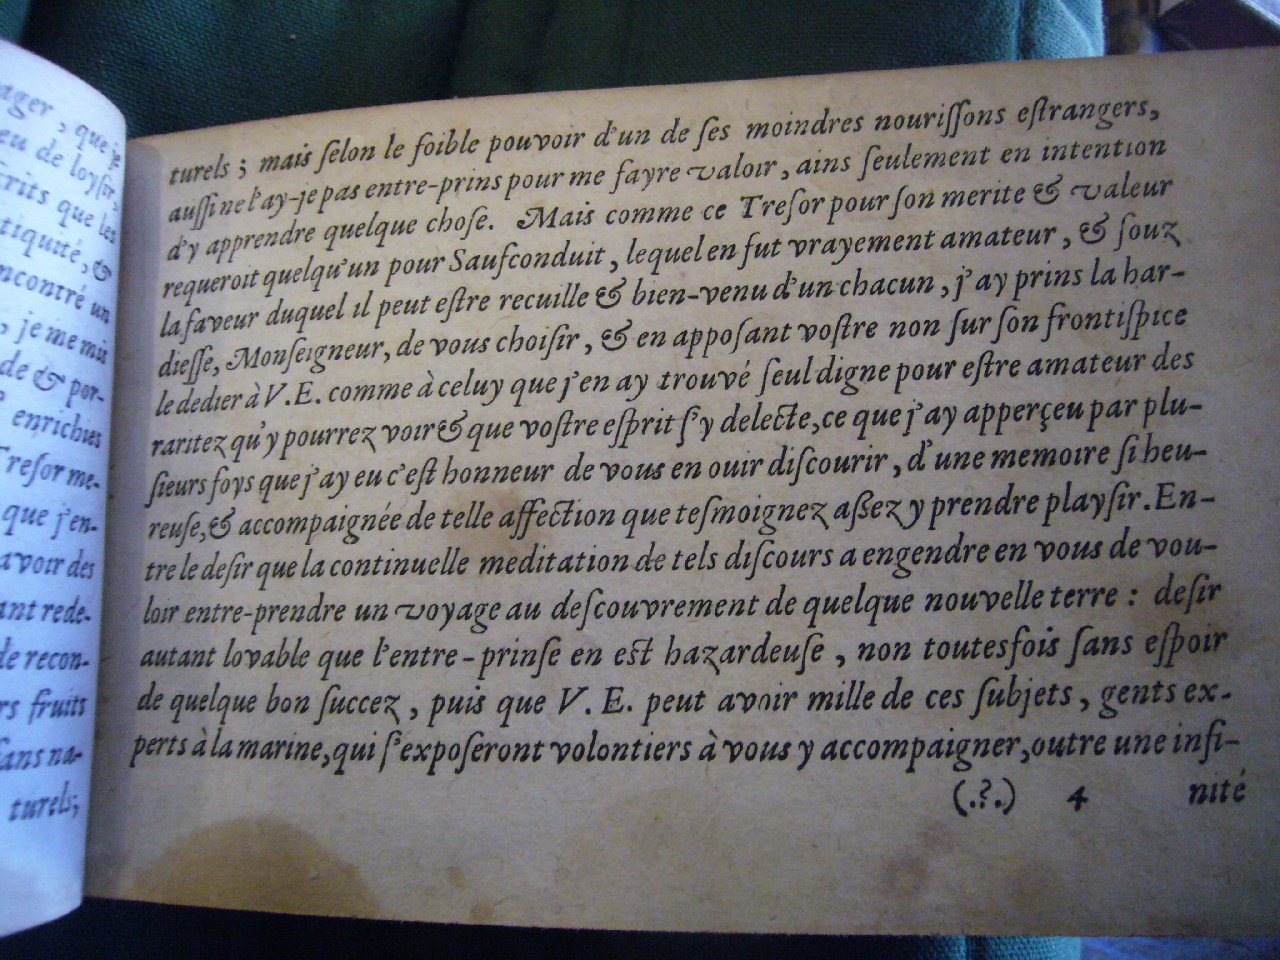 ager, que je
eu de loysir,
crits que les
tiquité, &
ncontré un
, je me mis
de & por-
enrichies
Tresor me-
que j'en-
avoir des
ant rede-
de recon-
rs fruits
sans na-
turels;
turels ; mais ſelon le foible pouvoir d'un de ſes moindres nouriſſons eſtrangers,
auſſi ne l'ay-je pas entre-prins pour me fayre valoir, ains ſeulement en intention
d'y apprendre quelque choſe. Mais comme ce Treſor pour ſon merite & valeur
requeroit quelqu'un pour Saufconduit, lequel en fut vrayement amateur, & ſouz
la faveur duquel il peut eſtre recuille & bien-venu d'un chacun, j'ay prins la har-
dieſſe, Monſeigneur, de vous choiſir, & en appoſant voſtre non ſur ſon frontiſpice
le dedier à V. E. comme à celuy que j'en ay trouvé ſeul digne pour eſtre amateur des
raritez qu'y pourrez voir & que voſtre eſprit ſ'y delecte, ce que j'ay apperçeu par plu-
ſieurs foys que j'ay eu c'eſt honneur de vous en ouir diſcourir, d'une memoire ſi heu-
reuſe, & accompaignée de telle affection que teſmoignez aſſez y prendre playſir. En-
tre le deſir que la continuelle meditation de tels diſcours a engendre en vous de vou-
loir entre-prendre un voyage au deſcouvrement de quelque nouvelle terre : deſir
autant lovable que l'entre-prinſe en est hazardeuſe, non toutesfois ſans eſpoir
de quelque bon ſuccez, puis que V. E. peut avoir mille de ces ſubjets, gents ex-
perts à la marine, qui ſ'expoſeront volontiers à vous y accompaigner, outre une infi-
(.?.) 4 nité